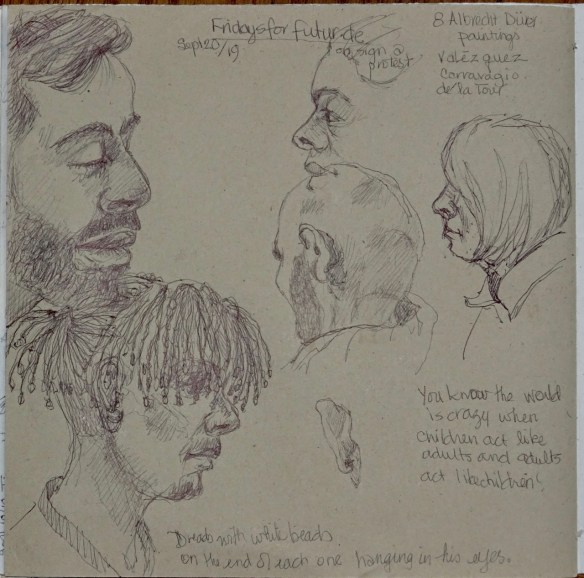 Fridays for future.de
Sept 20/19
on sign @
protest
8 Albrecht Dürer
paintings
Valézquez
Carravagio
de la Tour
You know the world
is crazy when
children act like
adults and adults
act like children!
Dreads with white beads
on the end of each one hanging in his eyes.